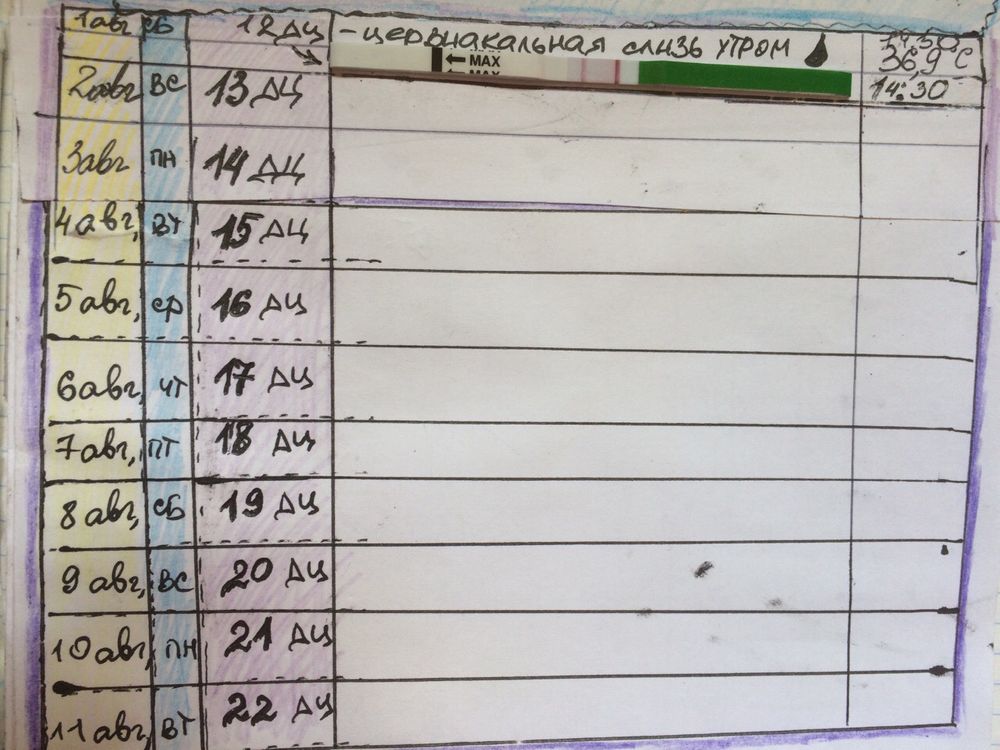 1авг СБ 12 ДЦ - цервиакальная слизь утром
← MAX 36,9°C
2авг ВС 13 ДЦ 14:30
3авг ПН 14 ДЦ
4авг, ВТ 15 ДЦ
5авг, ср 16 ДЦ
6авг, чТ 17 ДЦ
7авг, ПТ 18 ДЦ
8авг, сБ 19 ДЦ
9авг, ВС 20 ДЦ
10авг, ПН 21 ДЦ
11авг, ВТ 22 ДЦ